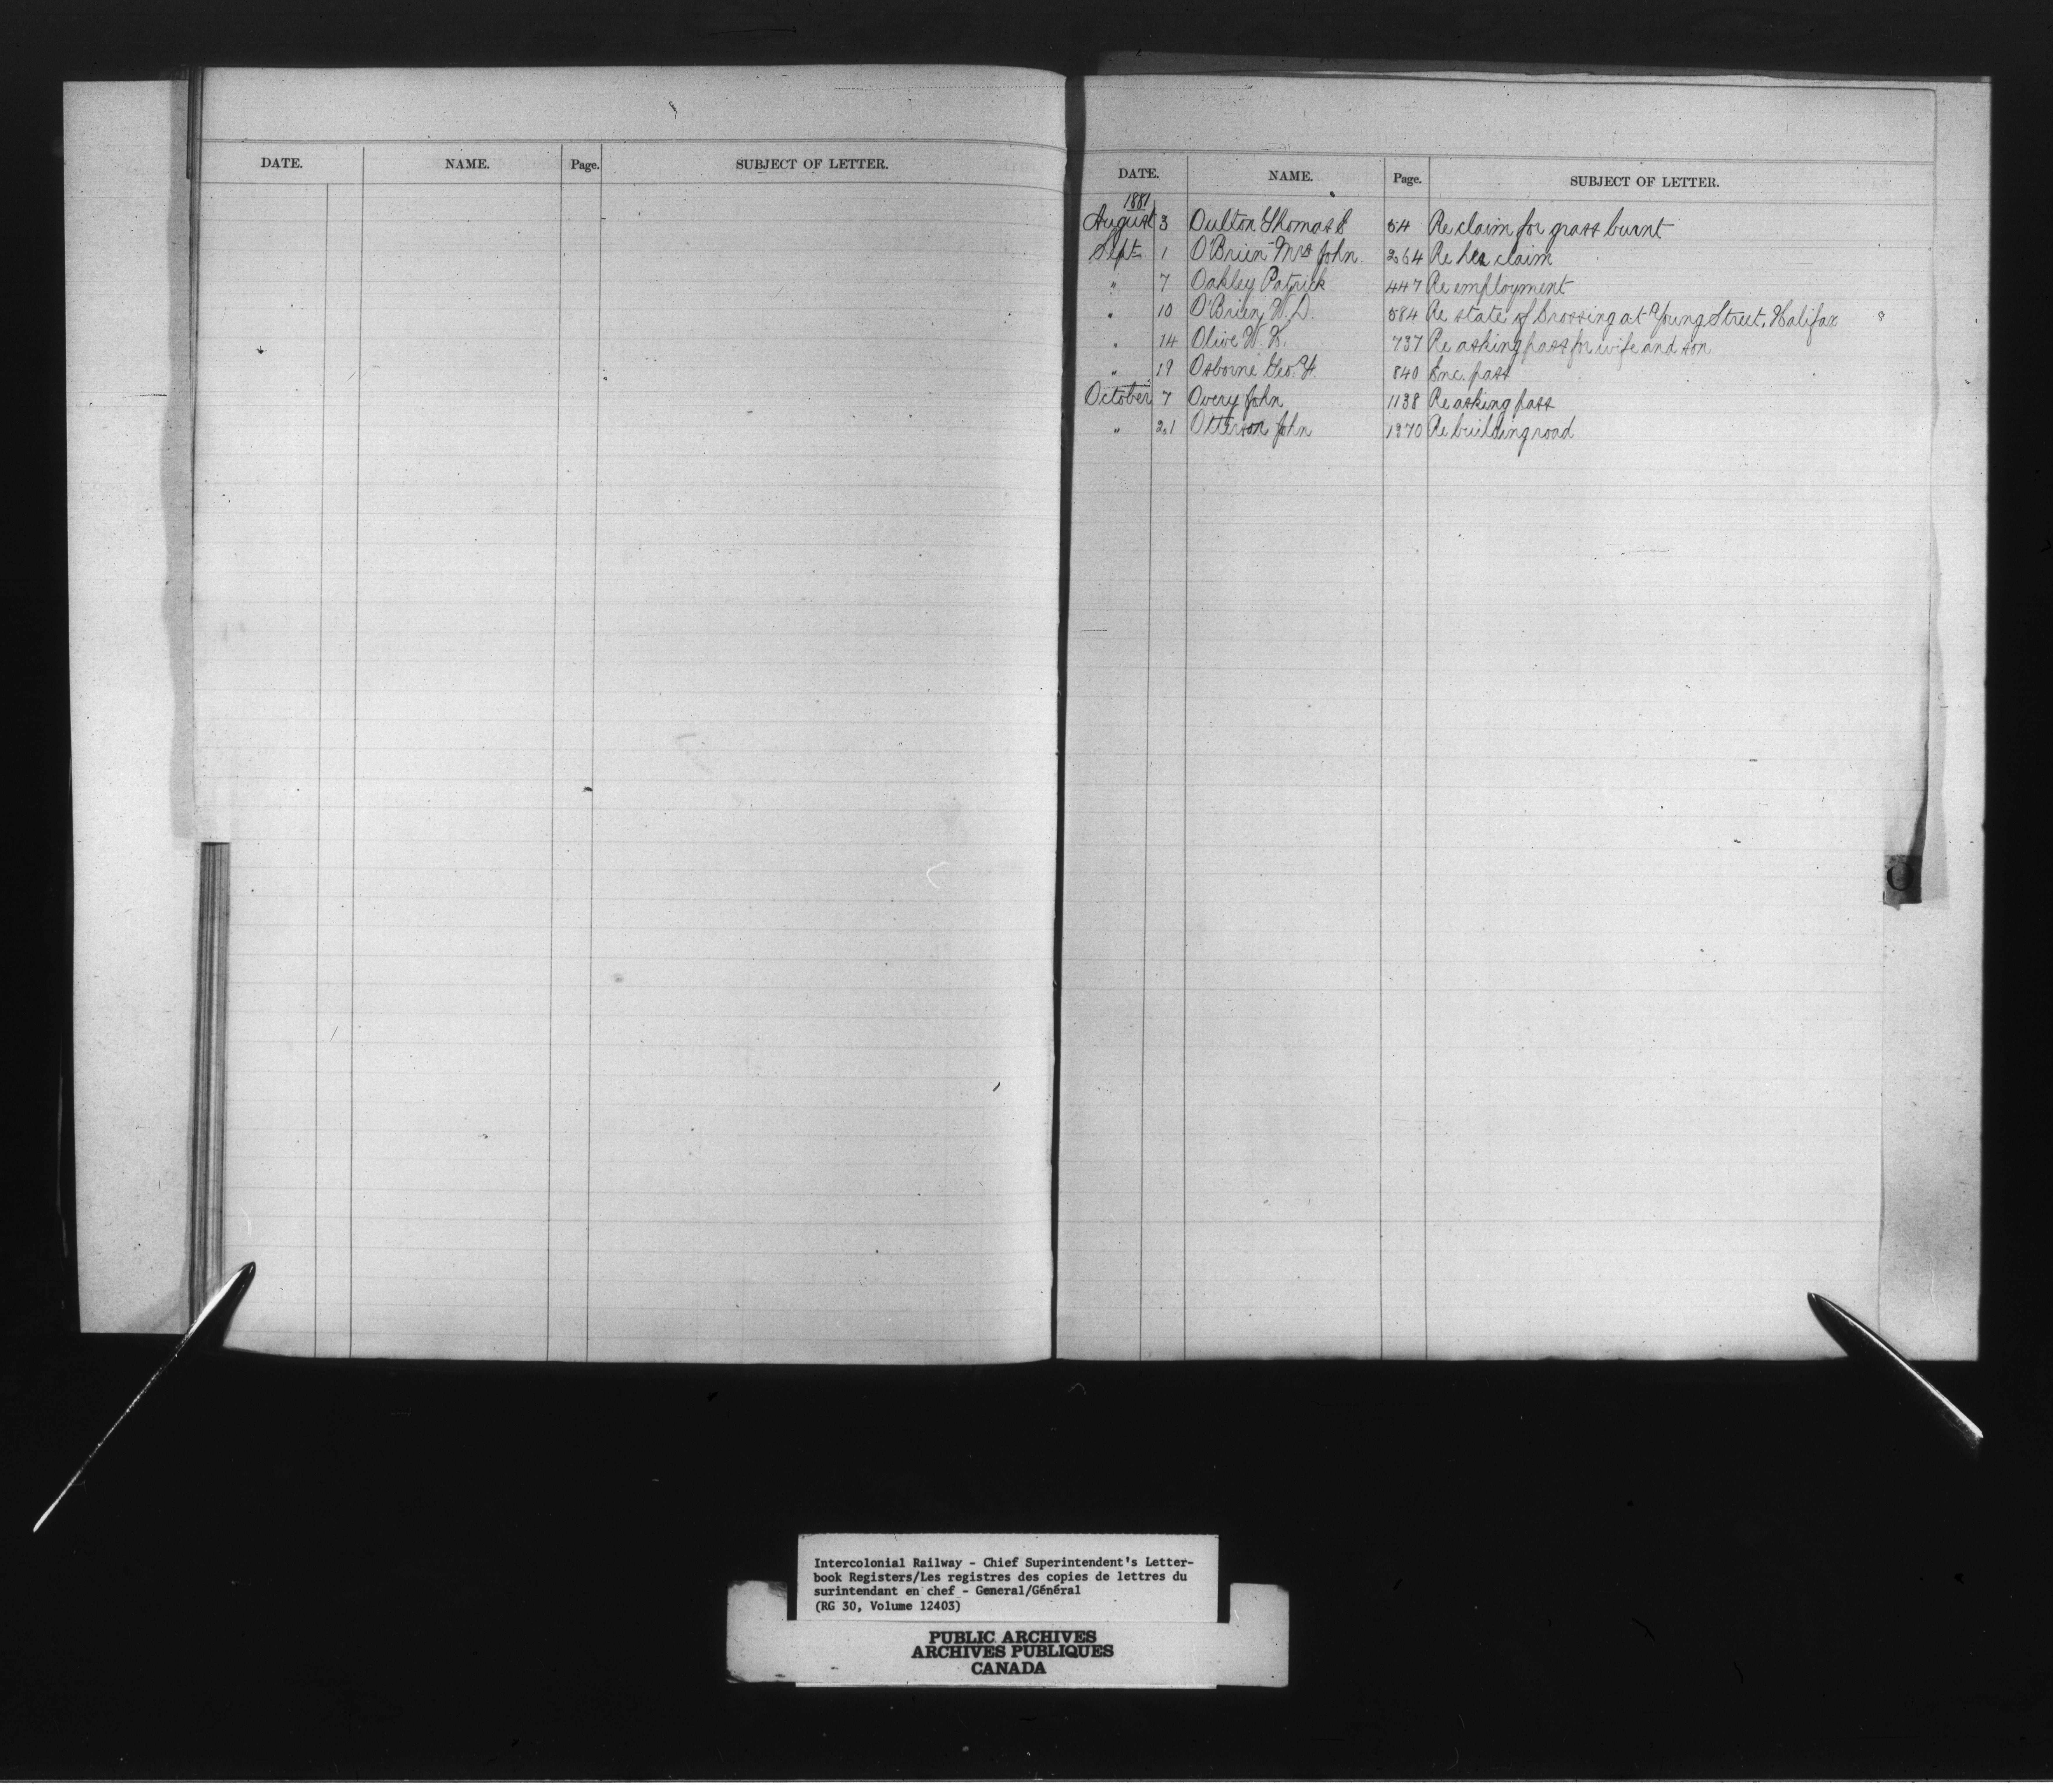 DATE. NAME. Page. SUBJECT OF LETTER.
DATE. NAME. Page. SUBJECT OF LETTER.
1881
August 3 Oulton Thomas E 54 Re claim for grass burnt
Sept 1 O'Brien Mrs John 264 Re her claim
" 7 Oakley Patrick 447 Re employment
" 10 O'Brien W. D. 584 Re state of Crossing at Young Street, Halifax
" 14 Olive W. 737 Re asking pass for wife and son
" 19 Osborne Geo. 840 Enc. pass
October 7 Overy John 1138 Re asking pass
" 21 Otterson John 1370 Re building road
O
Intercolonial Railway - Chief Superintendent's Letter-
book Registers/Les registres des copies de lettres du
surintendant en chef - General/Général
(RG 30, Volume 12403)
PUBLIC ARCHIVES
ARCHIVES PUBLIQUES
CANADA